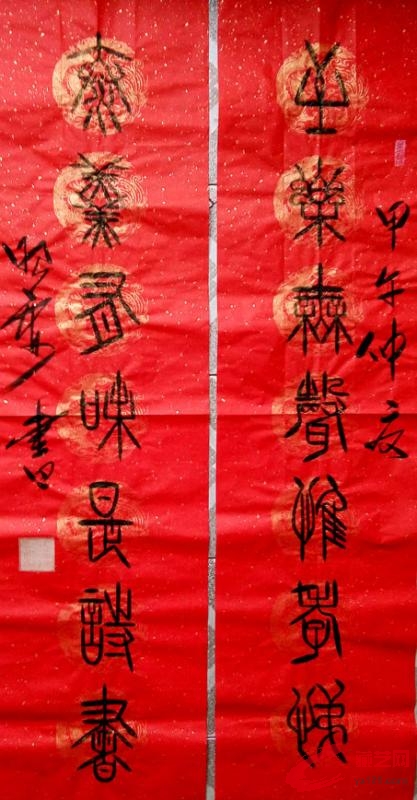 甲午仲夏
至樂無聲惟孝悌
泰羹有味是詩書
書